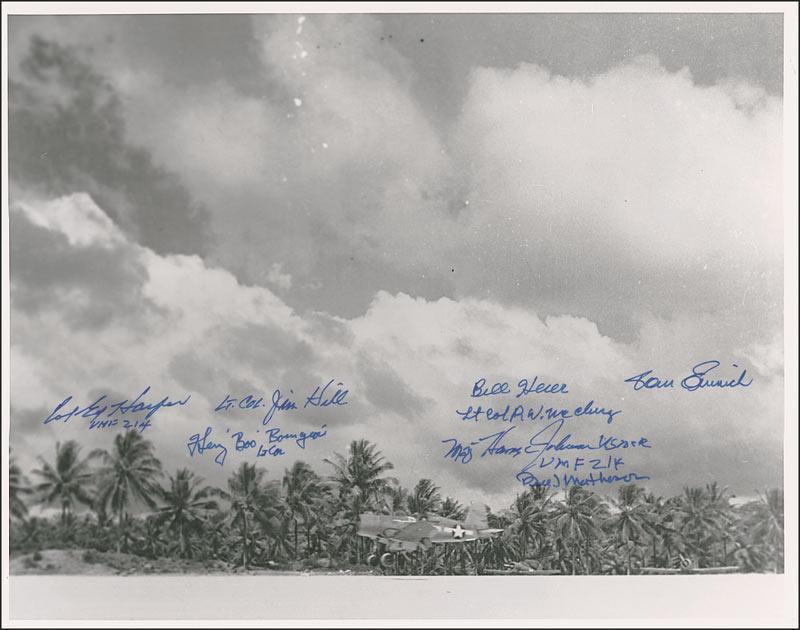 Col Ed Harper
VMF 214
Lt. Col. Jim Hill
Henry "Boo" Bourgeois
LtCol
Bill Heier
Lt Col R.W. McClurg
Maj Harry Johnson USMCR
VMF 214
Bruce J Matheson
Tom Emrich